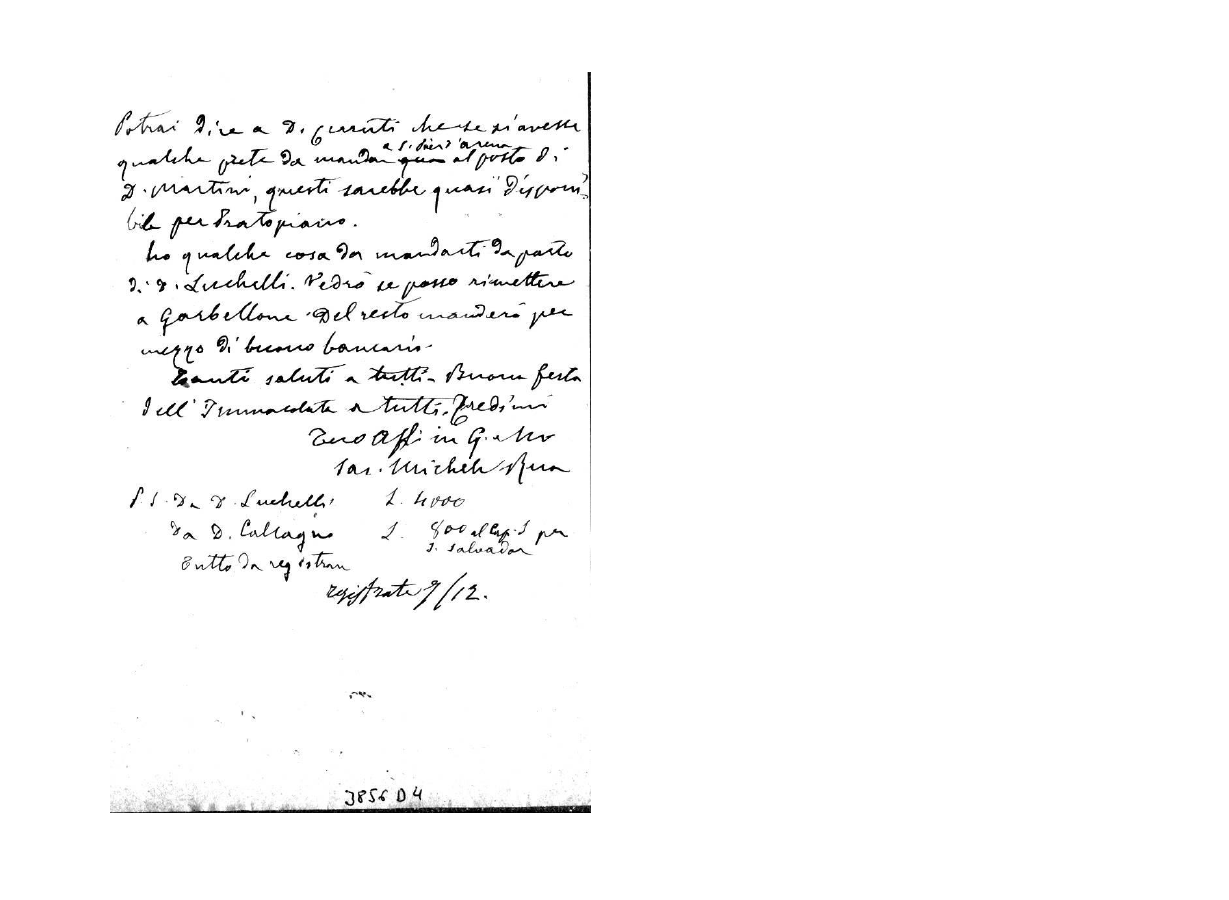 Potrai dire a D. Cerruti che se si avesse
qualche prete da mandar a S. Pier d'arena al posto di
D. Martini, questi sarebbe quasi disponi-
bile per Pratopiano.
ho qualche cosa da mandarti da parte
di D. Luchelli. Vedrò se posso rimettere
a Garbellone. Del resto manderò per
mezzo di buono bancario.
Tanti saluti a tutti. Buona festa
dell'Immacolata a tutti. Credimi
Tuo Aff in G. e M
Sac. Michele Rua
P.S. Da D. Luchelli L. 4000
da D. Caltagno L. 800 al Cap. S per
S. Salvador
Tutto da registrare
registrate 9/12.
3856 D 4